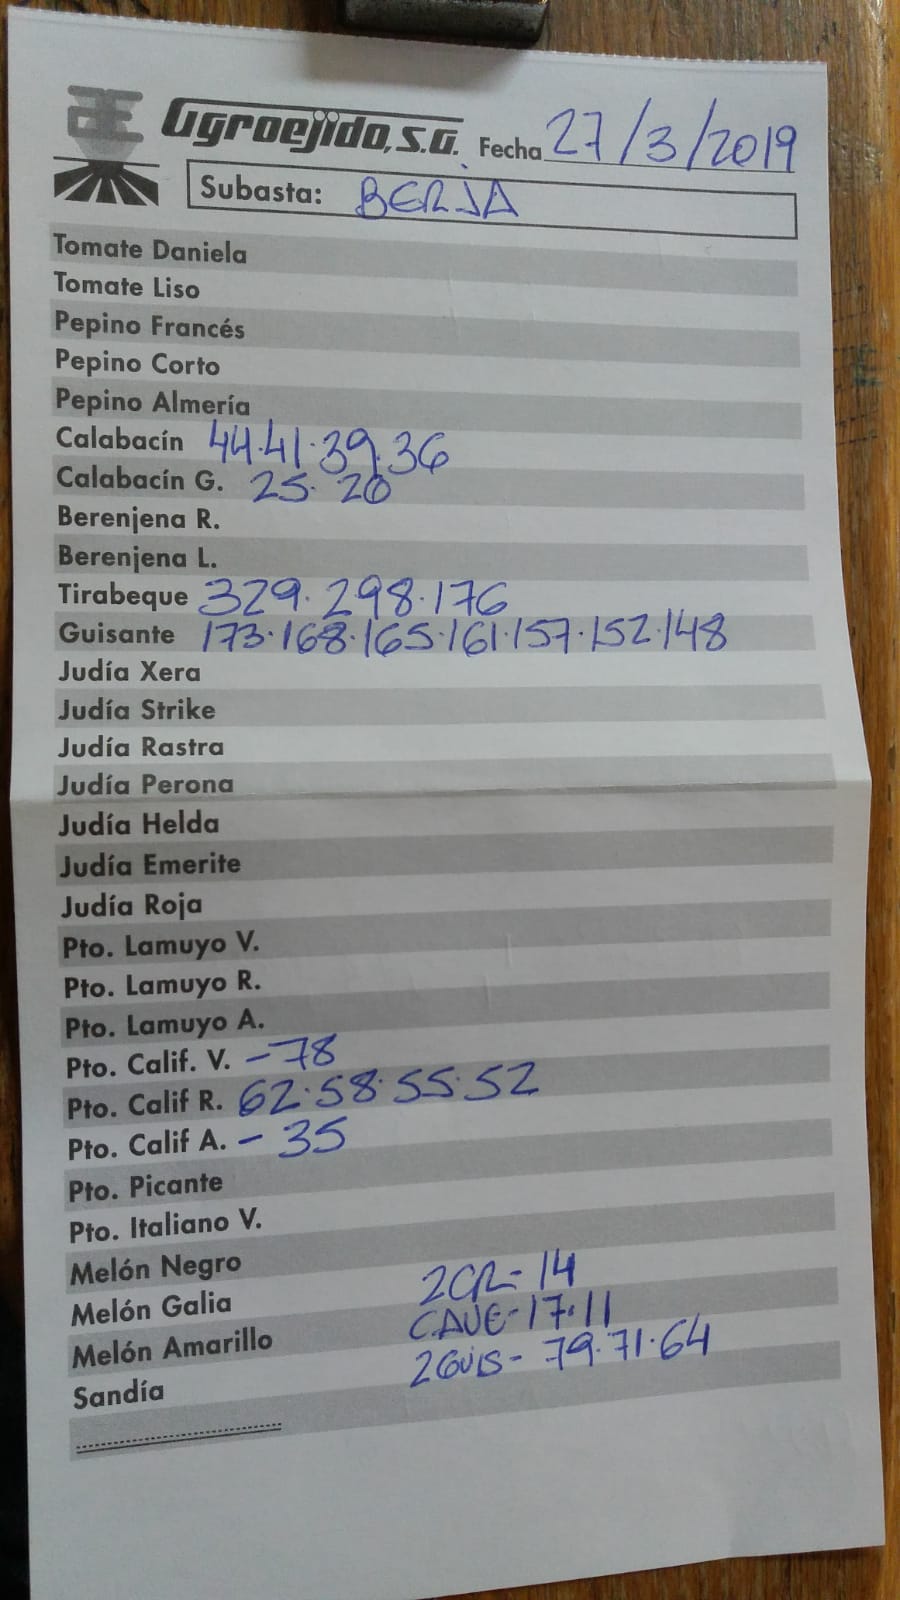 Agroejido, S.A. Fecha 27/3/2019
Subasta: BERJA
Tomate Daniela
Tomate Liso
Pepino Francés
Pepino Corto
Pepino Almería
Calabacín 44.41.39.36
Calabacín G. 25. 20
Berenjena R.
Berenjena L.
Tirabeque 329.298.176
Guisante 173.168.165.161.157.152.148
Judía Xera
Judía Strike
Judía Rastra
Judía Perona
Judía Helda
Judía Emerite
Judía Roja
Pto. Lamuyo V.
Pto. Lamuyo R.
Pto. Lamuyo A.
Pto. Calif. V. - 78
Pto. Calif R. 62.58.55.52
Pto. Calif A. - 35
Pto. Picante
Pto. Italiano V.
Melón Negro
Melón Galia 2CR- 14
Melón Amarillo CAVE- 17.11
Sandía 2GUIS- 79.71.64